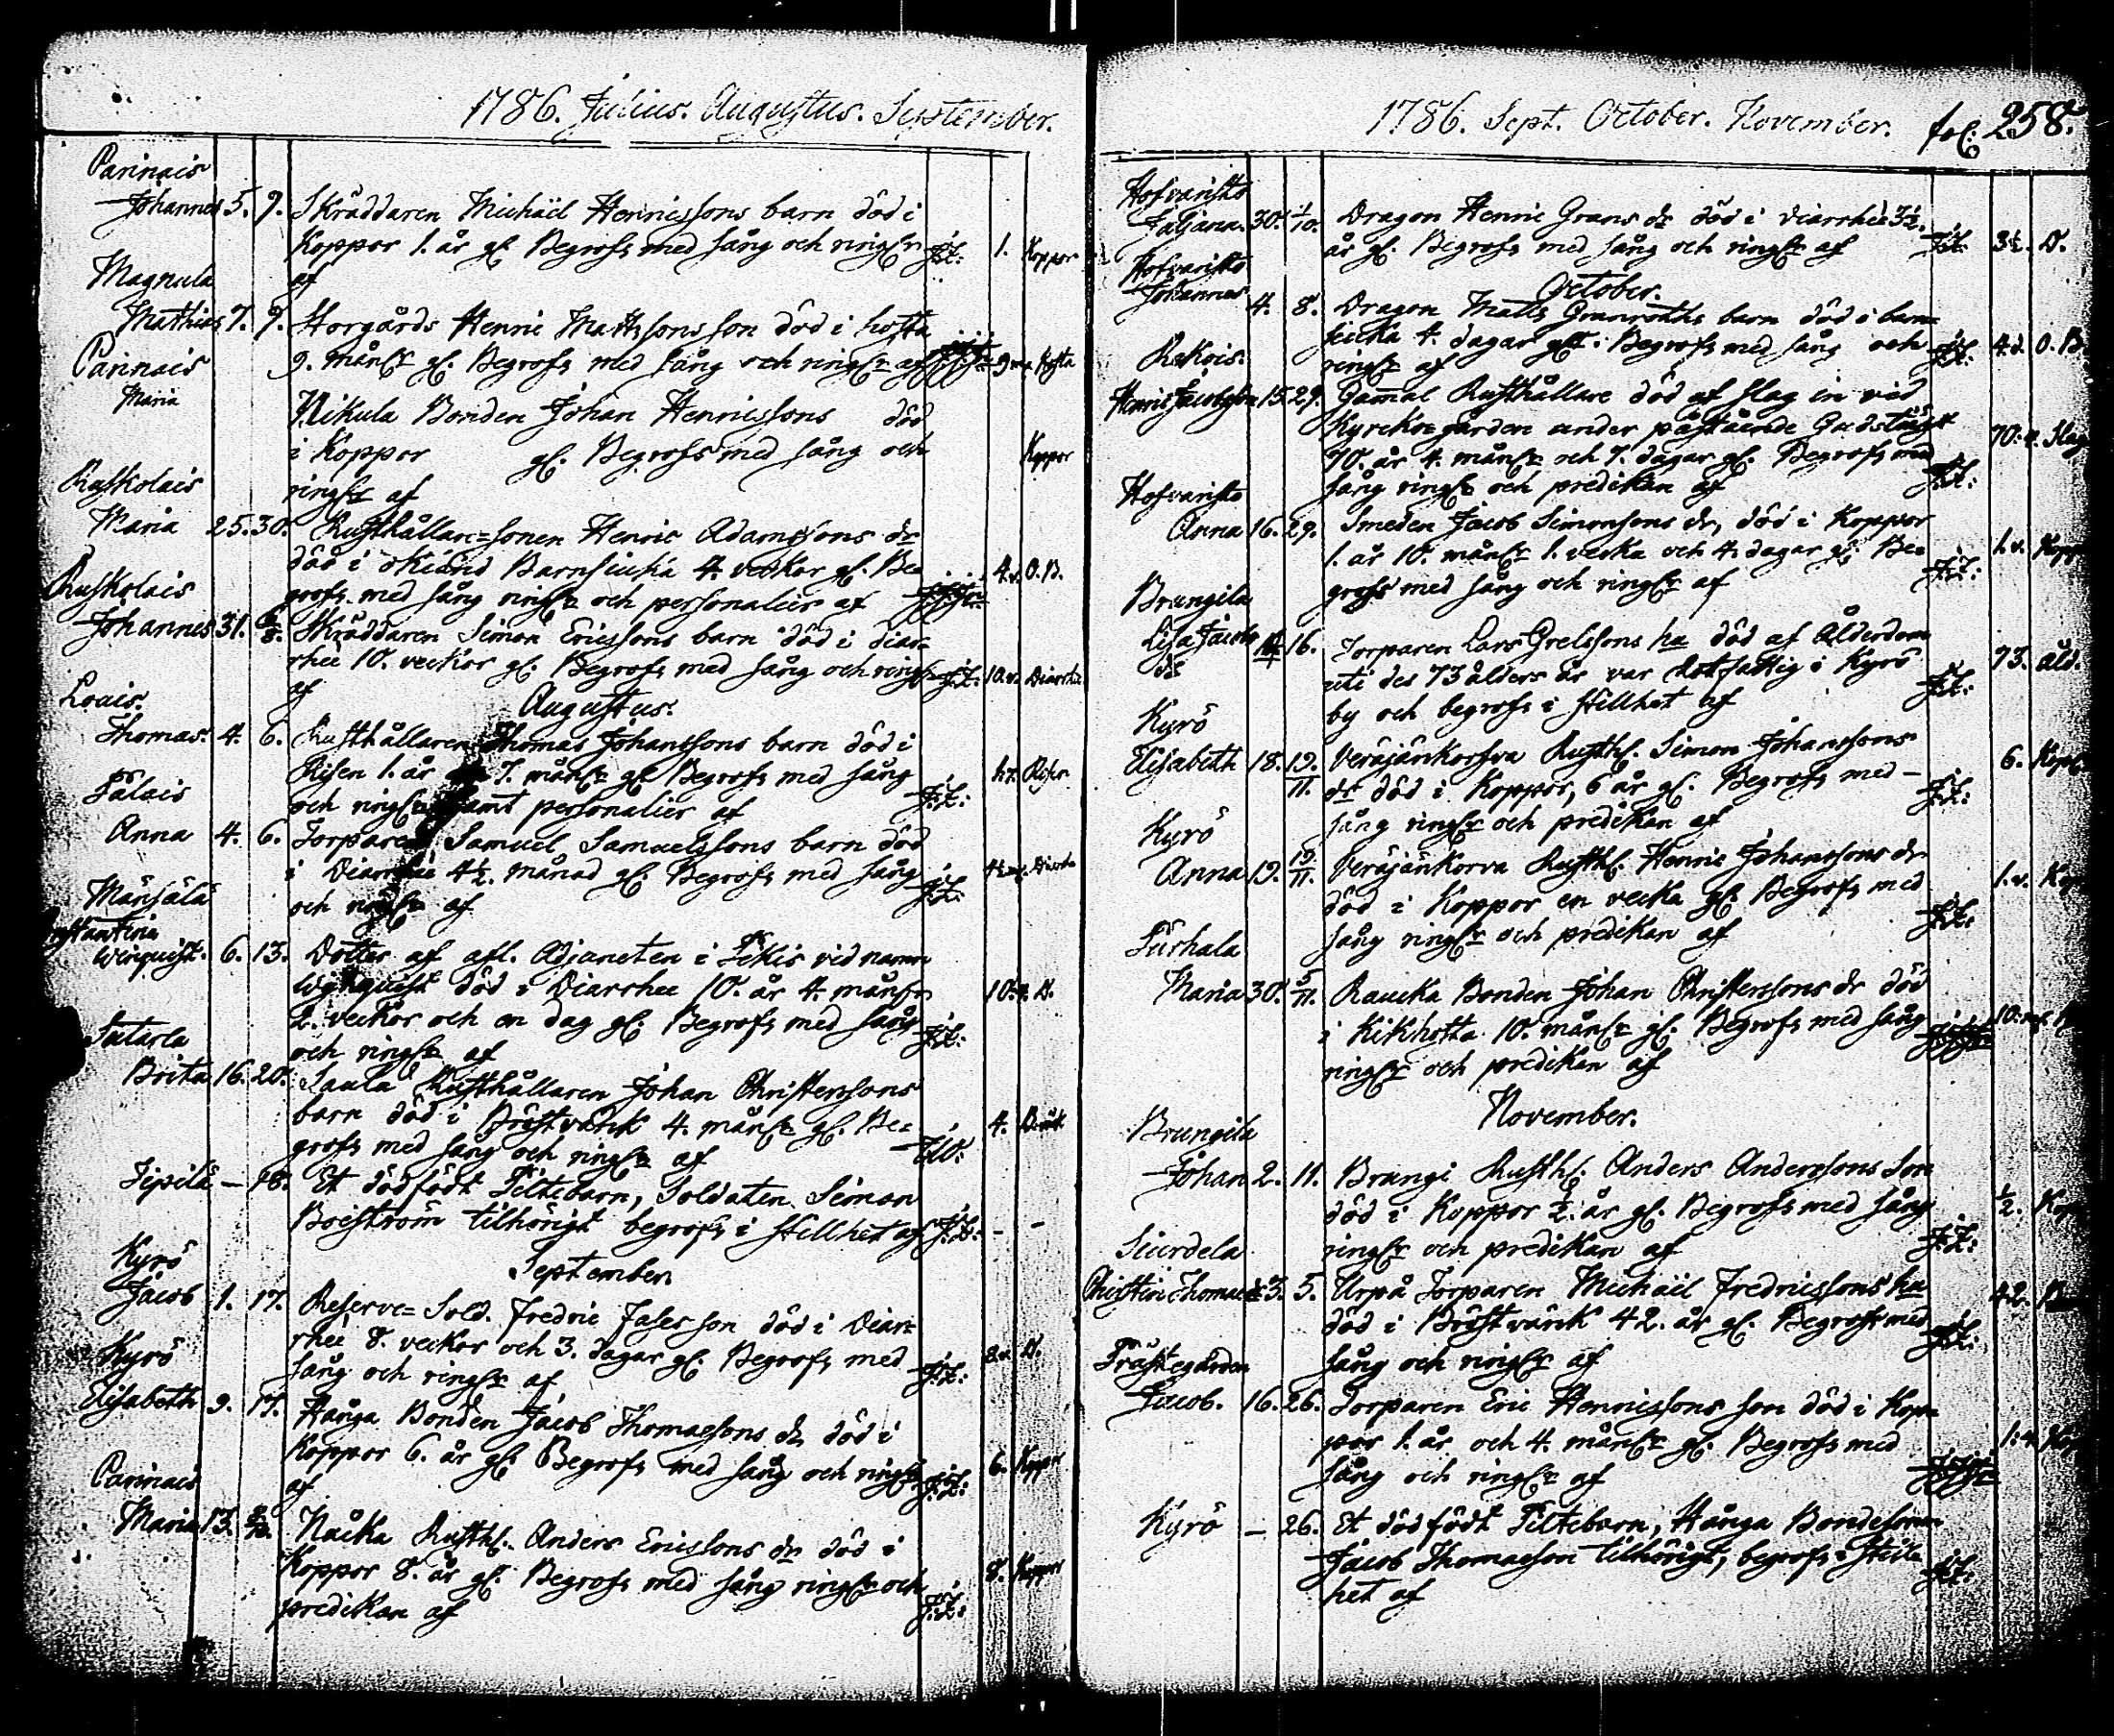 1786. Julius. Augustus. September.
Parinais
Johannes 5. 9. Skräddaren Michäel Henricssons barn död i
Koppor 1. år gl. Begrofs med sång och ringn: J:Z: 1. Koppor
af
Magnula
Mathias 7. 9. Storgårds Henric Mattssons son död i hosta
9. mån:r gl. Begrofs med sång och ringn: af 9 m. Hosta
Parinais
Maria
Nikula Bonden Johan Henricssons död
i Koppor gl. Begrofs med sång och Koppor
ringn: af
Ruskolais
Maria 25. 30. Rusthållare=sonen Henric Adamssons dr
död i okiänd Barnsiuka 4. veckor gl. Be= 4.v. O.B.
grofs med sång ringn: och personalier af
Ruskolais
Johannes 31. 6/8. Skräddaren Simon Ericssons barn död i diar=
rhée 10. veckor gl. Begrofs med sång och ringn: J:Z: 10.v. Diarrhée
af
Augustus.
Louis.
Thomas. 4. 6. Rusthållaren Thomas Johanssons barn död i
Risen 1. år 7. mån:r gl. Begrofs med sång
och ringn: samt personalier af J:Z:
Pälais
Anna 4. 6. Torparen Samuel Samuelssons barn död
i Diarrhée 4½. månad gl. Begrofs med sång 4½ m. Diarrhé
och ringn: af J:Z:
Mänsälä
Winquist. 6. 13. Dotter af afl. Adjuncten i Pikis vid namn
Winquist död i Diarrhee 10. år 4. mån:r 10. D.
2. veckor och en dag gl. Begrofs med sång J:Z:
och ringn: af
Satarla
Brita 16. 20. Saula Rusthållaren Johan Christerssons
barn död i Bröstvärk 4. mån:r gl. Be= 4.
grofs med sång och ringn: af
Sipilä — 18. Et dödfödt Piltebarn, Soldaten Simon
Boiström tilhörigt begrofs i stillhet af J:Z: - -
September
Kyrö
Jacob 1. 17. Reserve=Sold. Fredric son död i Diar=
rhée 8. veckor och 3. dagar gl. Begrofs med 8.v. D.
sång och ringn: af J:Z:
Kyrö
Elisabeth 9. 17. Hånga Bonden Jacob Thomassons dr död i
Koppor 6. år gl. Begrofs med sång och ringn: J:Z: 6. Koppor
af
Parinais
Maria 13. Nåcka Rusth. Anders Ericssons dr död i
Koppor 8. år gl. Begrofs med sång ringn: och 8. Koppor
predikan af J:Z:
1786. Sept. October. November. fol. 258.
Hofvaristo
Taljana. 30. 1/10. Dragon Henric Grans dr död i diarrhée 3½.
år gl. Begrofs med sång och ringn: af J:Z: 3½. D.
October.
Hofvaristo
Johannes 4. 8. Dragon Matts Granroths barn död i barn=
siuka 4. dagar gl. Begrofs med sång och J:Z: 4.d. O.B.
ringn: af
Rekois.
Henric Jacobsson 15. 29. Gamal Rusthållare död af slag in vid
Kyrcko-gården under påstående Gudstienst 70. Slag
70. år 4. mån:r och 7. dagar gl. Begrofs med
sång ringn: och predikan af J:Z:
Hofvaristo
Anna 16. 29. Smeden Jacob Simonsons dr, död i Koppor
1. år 10. mån:r 1. vecka och 4. dagar gl. Be=
grofs med sång och ringn: af J:Z:
Brungila
Lisa Jacobs 16. Torparen Lars Grelssons ha död af Ålderdom
ds uti des 73 ålders år var Rotfattig i Kyrö 73. Åld.
by och begrofs i stillhet af J:Z:
Kyrö
Elisabeth 18. 19/11. Veräjänkorfva Rusth. Simon Johanssons
dr död i Koppor, 6 år gl. Begrofs med — 6.
sång ringn: och predikan af J:Z:
Kyrö
Anna 19. 19/11. Veräjänkorva Rusth. Henric Johanssons dr
död i Koppor en vecka gl. Begrofs med 1.v.
sång ringn: och predikan af J:Z:
Turhala
Maria 30. 5/11. Raucka Bonden Johan Christerssons dr död
i Kikhosta 10. mån:r gl. Begrofs med sång 10. m.
ringn: och predikan af
November.
Brungila
Johan 2. 11. Brungi Rusth. Anders Anderssons son
död i Koppor ½. år gl. Begrofs med sång ½.
ringn: och predikan af J:Z:
Siurdela
Christin Thomasdr 3. 5. Urpå Torparen Michäel Fredricssons ha
död i Bröstvärk 42. år gl. Begrofs med J:Z: 42.
sång och ringn: af
Prästegården
Jacob. 16. 26. Torparen Eric Henricssons son död i Kop=
por 1. år och 4. mån:r gl. Begrofs med
sång och ringn: af
Kyrö — 26. Et dödfödt Piltebarn, Hånga Bondesonen
Jacob Thomasson tilhörigt, begrofs i still=
het af J:Z: